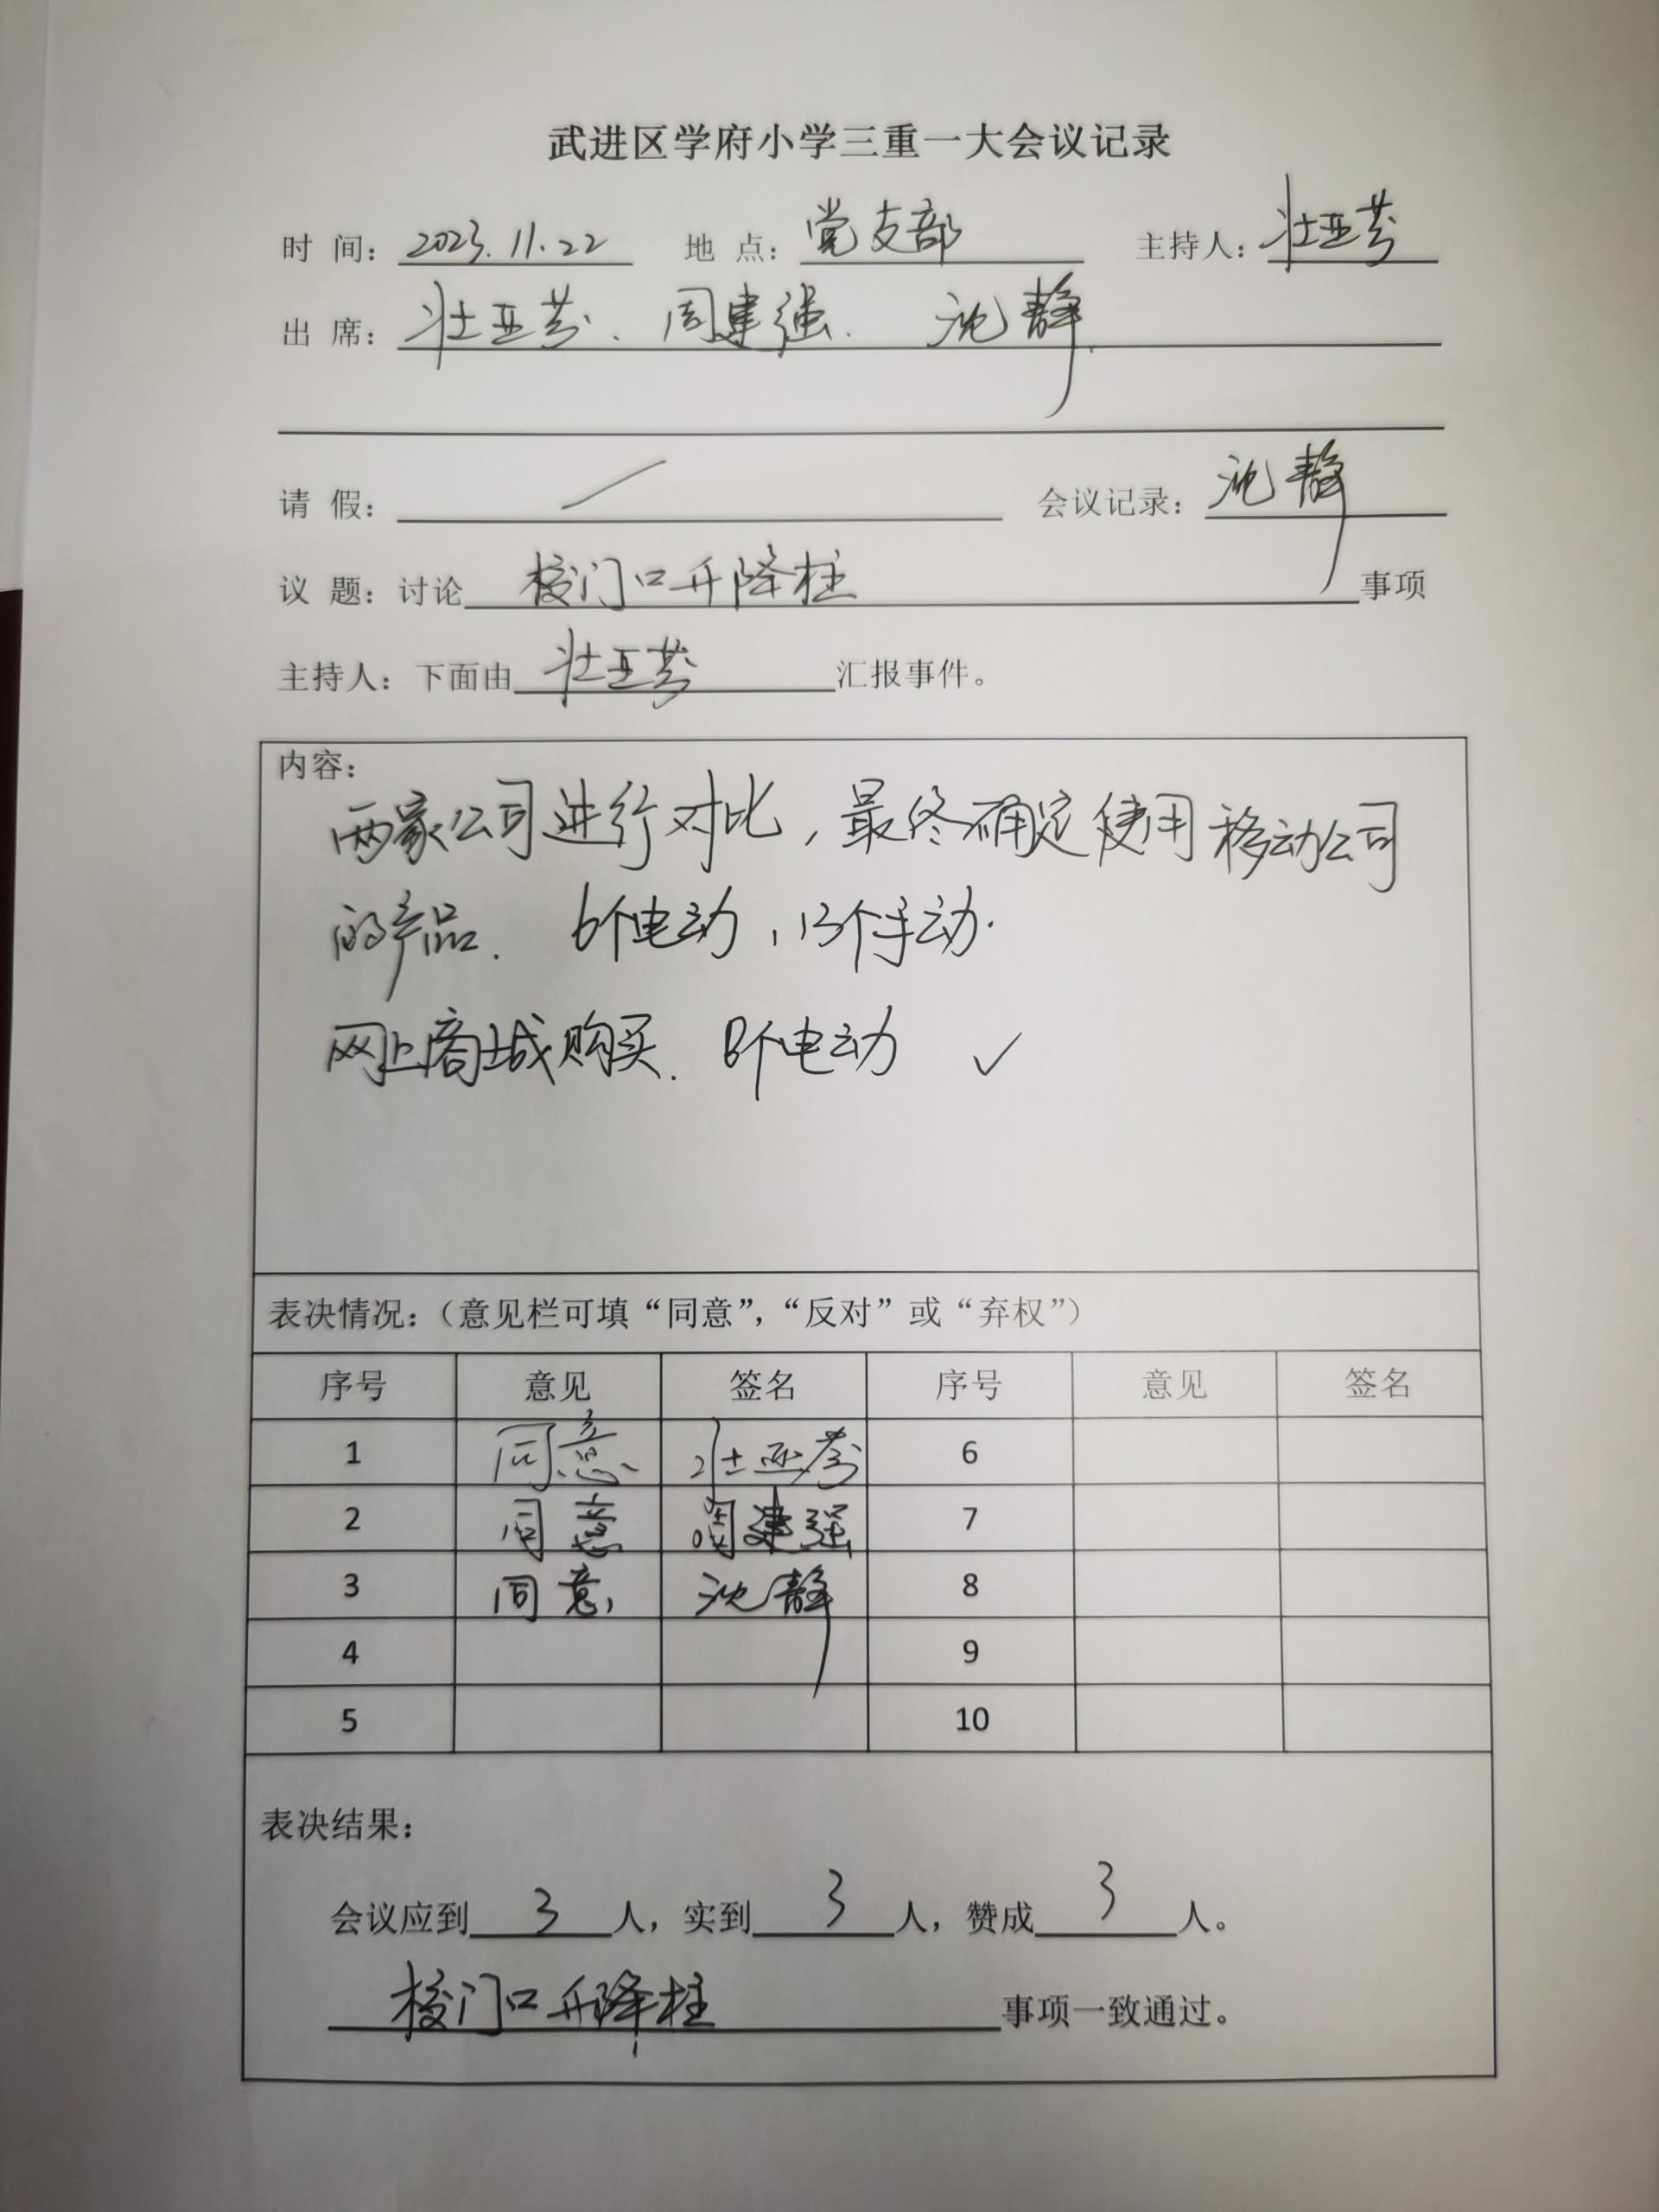 武进区学府小学三重一大会议记录
时 间：2023.11.22 地 点：党支部 主持人：壮亚芬
出 席：壮亚芬、周建强、沈静
请 假：／ 会议记录：沈静
议 题：讨论校门口升降柱事项
主持人：下面由壮亚芬汇报事件。
内容：
两家公司进行对比，最终确定使用移动公司
的产品. 6个电动，13个手动.
网上商城购买. 8个电动 ✓
表决情况：（意见栏可填“同意”，“反对”或“弃权”）
序号 意见 签名 序号 意见 签名
1 同意 壮亚芬 6
2 同意 周建强 7
3 同意 沈静 8
4 9
5 10
表决结果：
会议应到3人，实到3人，赞成3人。
校门口升降柱事项一致通过。